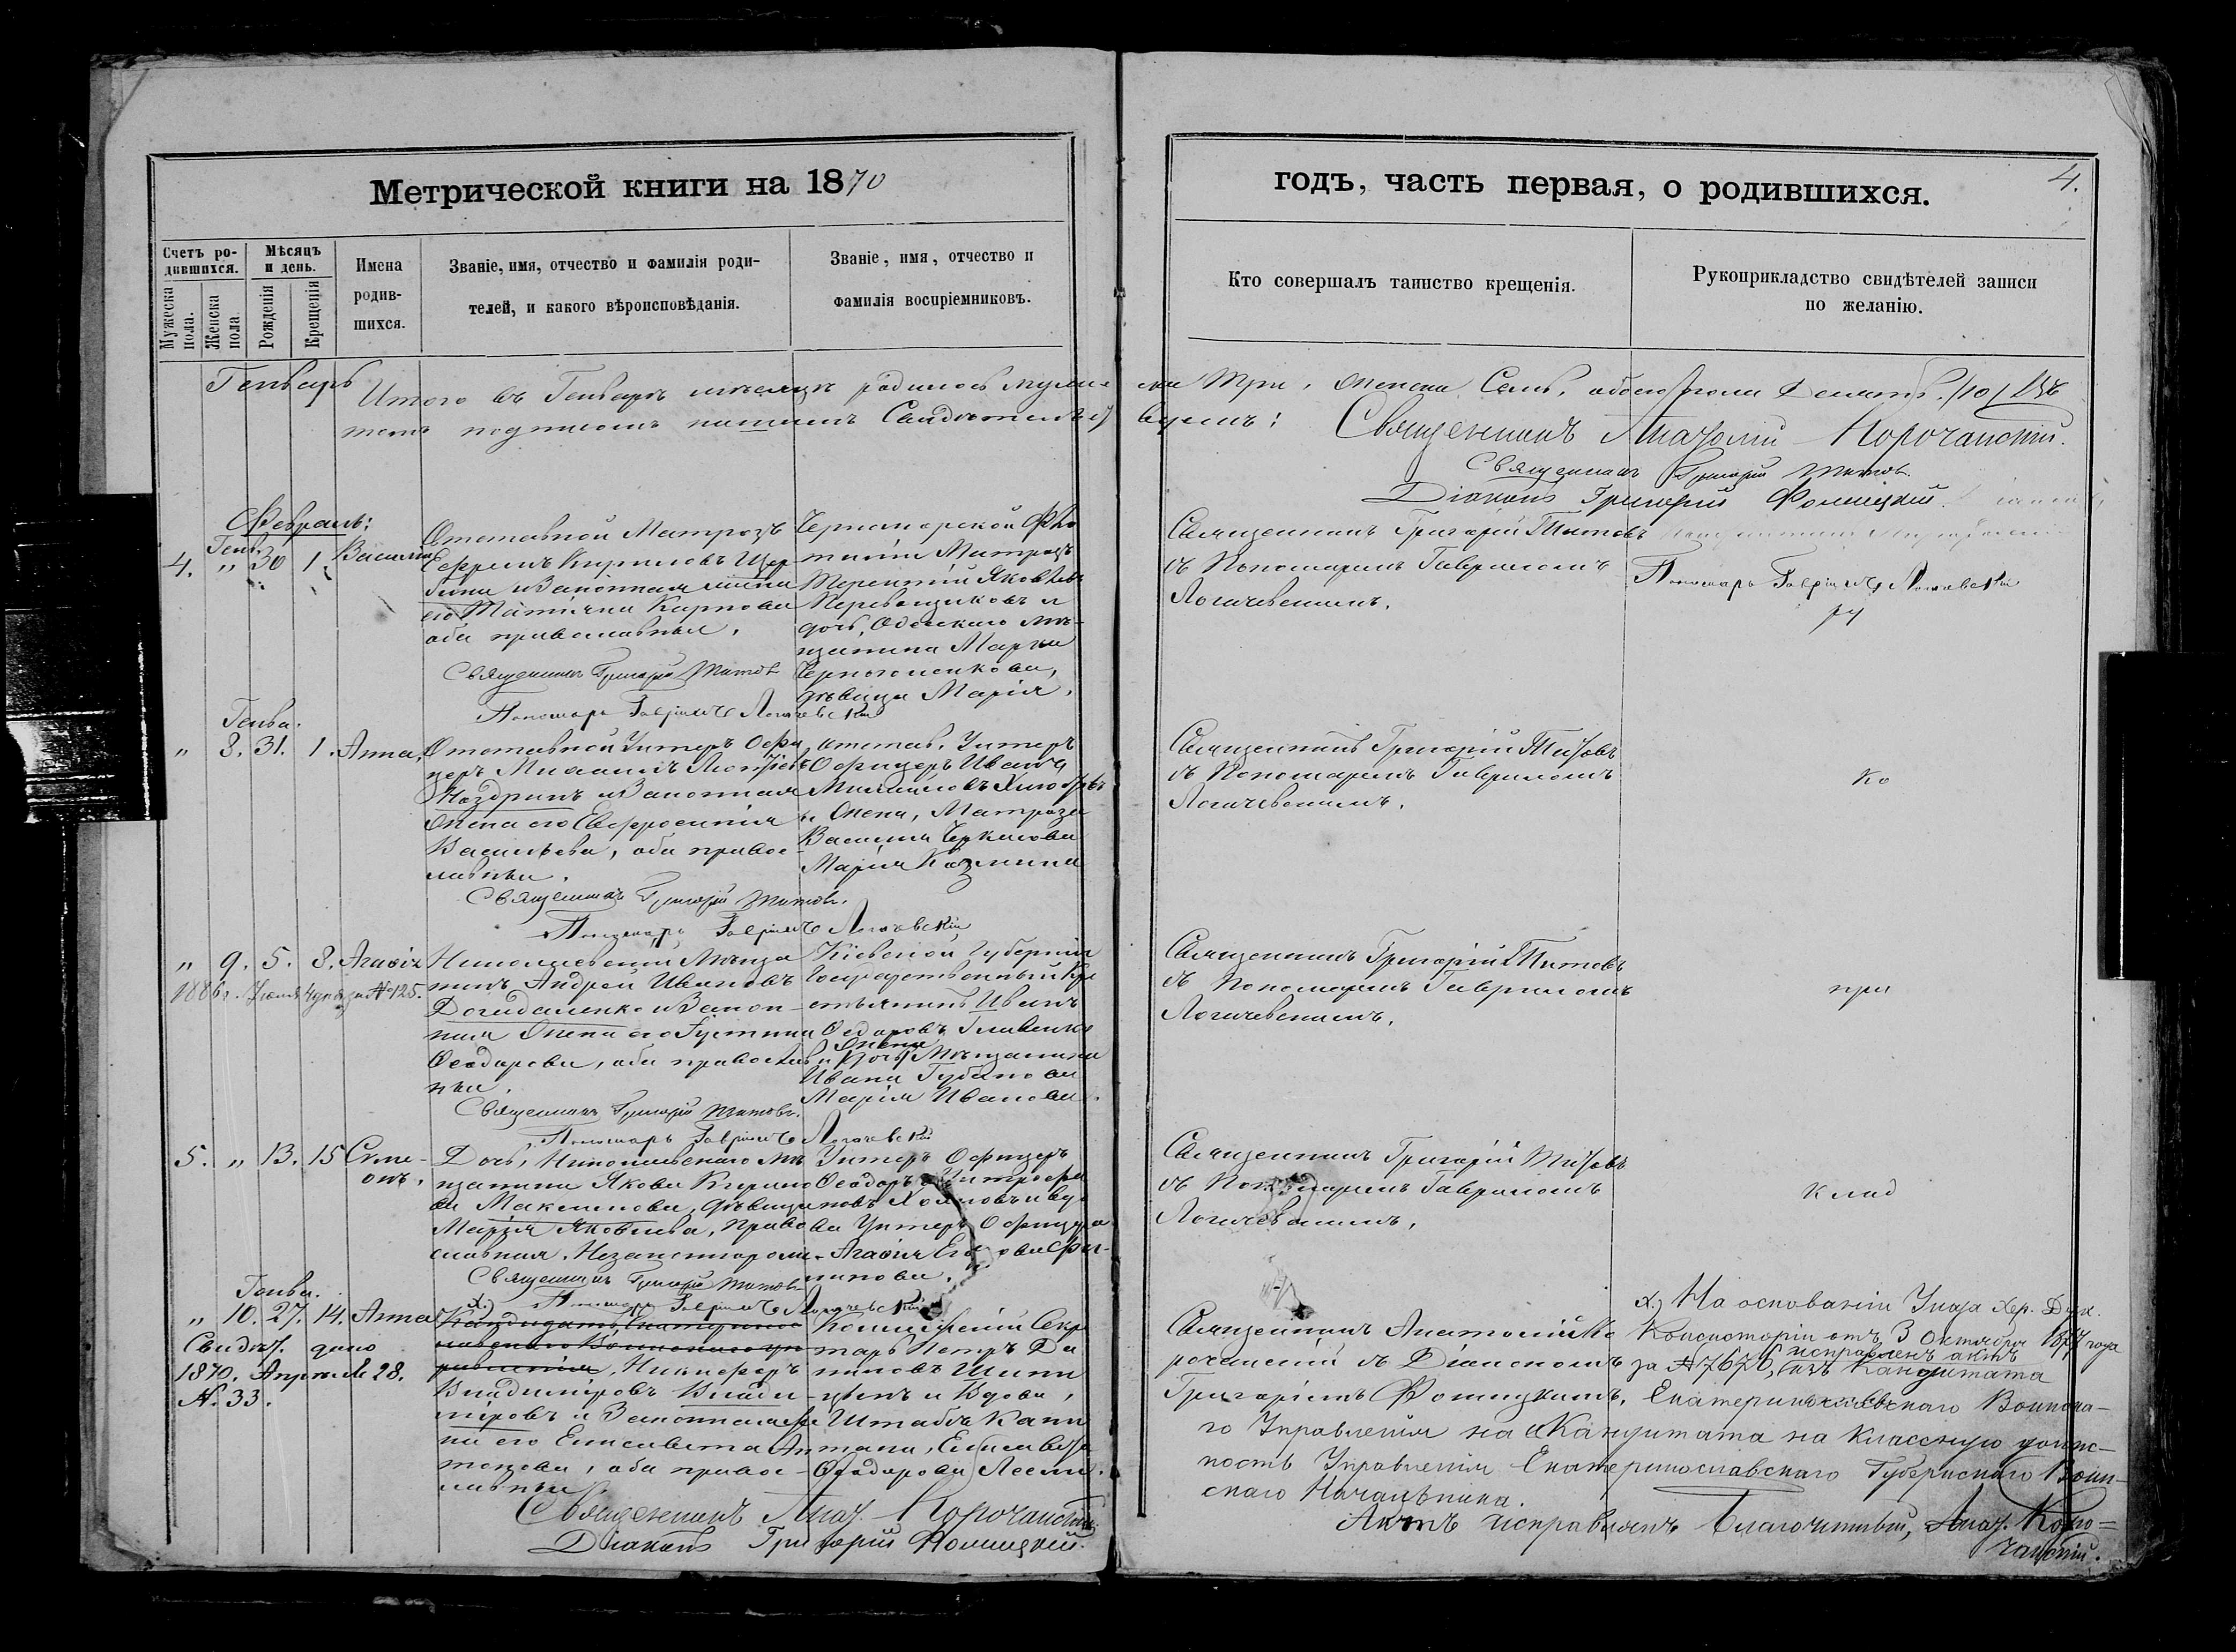 Метрической книги на 1870
годъ, часть первая, о родившихся.
4.
Счетъ ро-
дившихся.
Мужеска
пола.
Женска
пола
Мѣсяцъ
и день.
Рожденія
Крещенія
Имена
родив-
шихся.
Званіе, имя, отчество и фамилія роди-
телей, и какого вѣроисповѣданія.
Званіе, имя, отчество и
фамилія воспріемниковъ.
Кто совершалъ таинство крещенія.
Рукоприкладство свидѣтелей записи
по желанію.
Генварь
Итого въ Генварѣ мѣсяцѣ родилось муже-
ска три, женска Семь, обоего пола Десять /10/ Въ
чемъ подписомъ нашимъ Свидѣтельст
вуемъ:
Священникъ Анатолій Корочанскій.
Священникъ Григорій Титов.
Діаконъ Григорій Фомицкій.
Февраль:
Генв.
4. " 30 1. Василій
Отставной Матрозъ
Ефремъ Кириловъ Щер
бина и Законная жена
его Татіяна Карпова
оба православные.
Священникъ Григорій Титов
Пономарь Гавріилъ Логачевскій
Черноморской Фло
тиліи Матрозъ
Терентій Яковлевъ
Перевощиковъ и
дочь, Одесскаго мѣ-
щанина Марка
дѣвица Марія.
Священникъ Григорій Титовъ
съ Пономаремъ Гавріиломъ
Логачевскимъ.
Пономарь Гавріилъ Логачевскій
ру
Генва.
" 8. 31. 1. Анна,
Отставной Унтеръ Офи
церъ Михаилъ
Ноздринъ и Законная
Жена его Евфросинія
Васильева, оба право-
славные.
Священникъ Григорій Титовъ.
Пономарь Гавріилъ Логачевскій
отстав. Унтеръ
Офицеръ Иванъ
Михайловъ
и Жена, Матроза
Василія Черкасова
Марія Козмина
Священникъ Григорій Титовъ
съ Пономаремъ Гавріиломъ
Логачевскимъ.
ко
" 9. 5. 8. Агафія
1886 г. Іюля 4 дня за № 125.
Николаевскій Мѣща
нинъ Андрей Ивановъ
и Закон-
ная Жена его Іустина
Ѳеодорова, оба православ
ные.
Священникъ Григорій Титовъ.
Пономарь Гавріилъ Логачевскій
Кіевской Губерніи
Государственный Кре
стьянинъ Иванъ
Ѳедоровъ
Жена
и дочь Мѣщанина
Ивана Губанова
Марія Иванова.
Священникъ Григорій Титовъ
съ Пономаремъ Гавріиломъ
Логачевскимъ.
при
5. " 13. 15 Симе-
онъ.
Дочь, Николаевскаго мѣ
щанина Якова Кирило
ва Максимова, дѣвица
Марія Яковлева, Право
славная, Незаконнорож
Священникъ Григорій Титовъ
Пономарь Гавріилъ Логачевскій
Унтеръ Офицеръ
Ѳеодоръ Митрофа
новъ и вдо
ва Унтеръ Офицера
Агафія
Священникъ Григорій Титовъ
съ Пономаремъ Гавріиломъ
Логачевскимъ.
клад
Генва.
" 10. 27. 14. Анна
Свидѣт. дано
1870. Апрѣля 28.
№. 33.
х.) Кандидатъ Екатерино
славскаго Воинскаго уп
равленія, Никифоръ
Владиміровъ Влади-
міровъ и Законная же
на его Елисавета Ан
тонова, оба правос-
лавные
Священникъ Анат. Корочанскій.
Діаконъ Григорій Фомицкій.
Коллежскій Секре
тарь Петръ
и Вдова,
Штабсъ Капи
тана, Елисавета
Ѳеодорова
Священникъ Анатолій Ко
рочанскій съ Діакономъ
Григоріемъ Фомицкимъ.
х.) На основаніи Указа Хер. Дух.
Консисторіи отъ 3 Октября года
за № 7676, исправленъ актъ
изъ Кандитата
Екатеринославскаго Воинска-
го Управленія на Кандитата на классную долж-
ность Управленія Екатеринославскаго Губернскаго Воин-
скаго Начальника.
Актъ исправлялъ Благочинный, Анат. Коро=
чанскій.